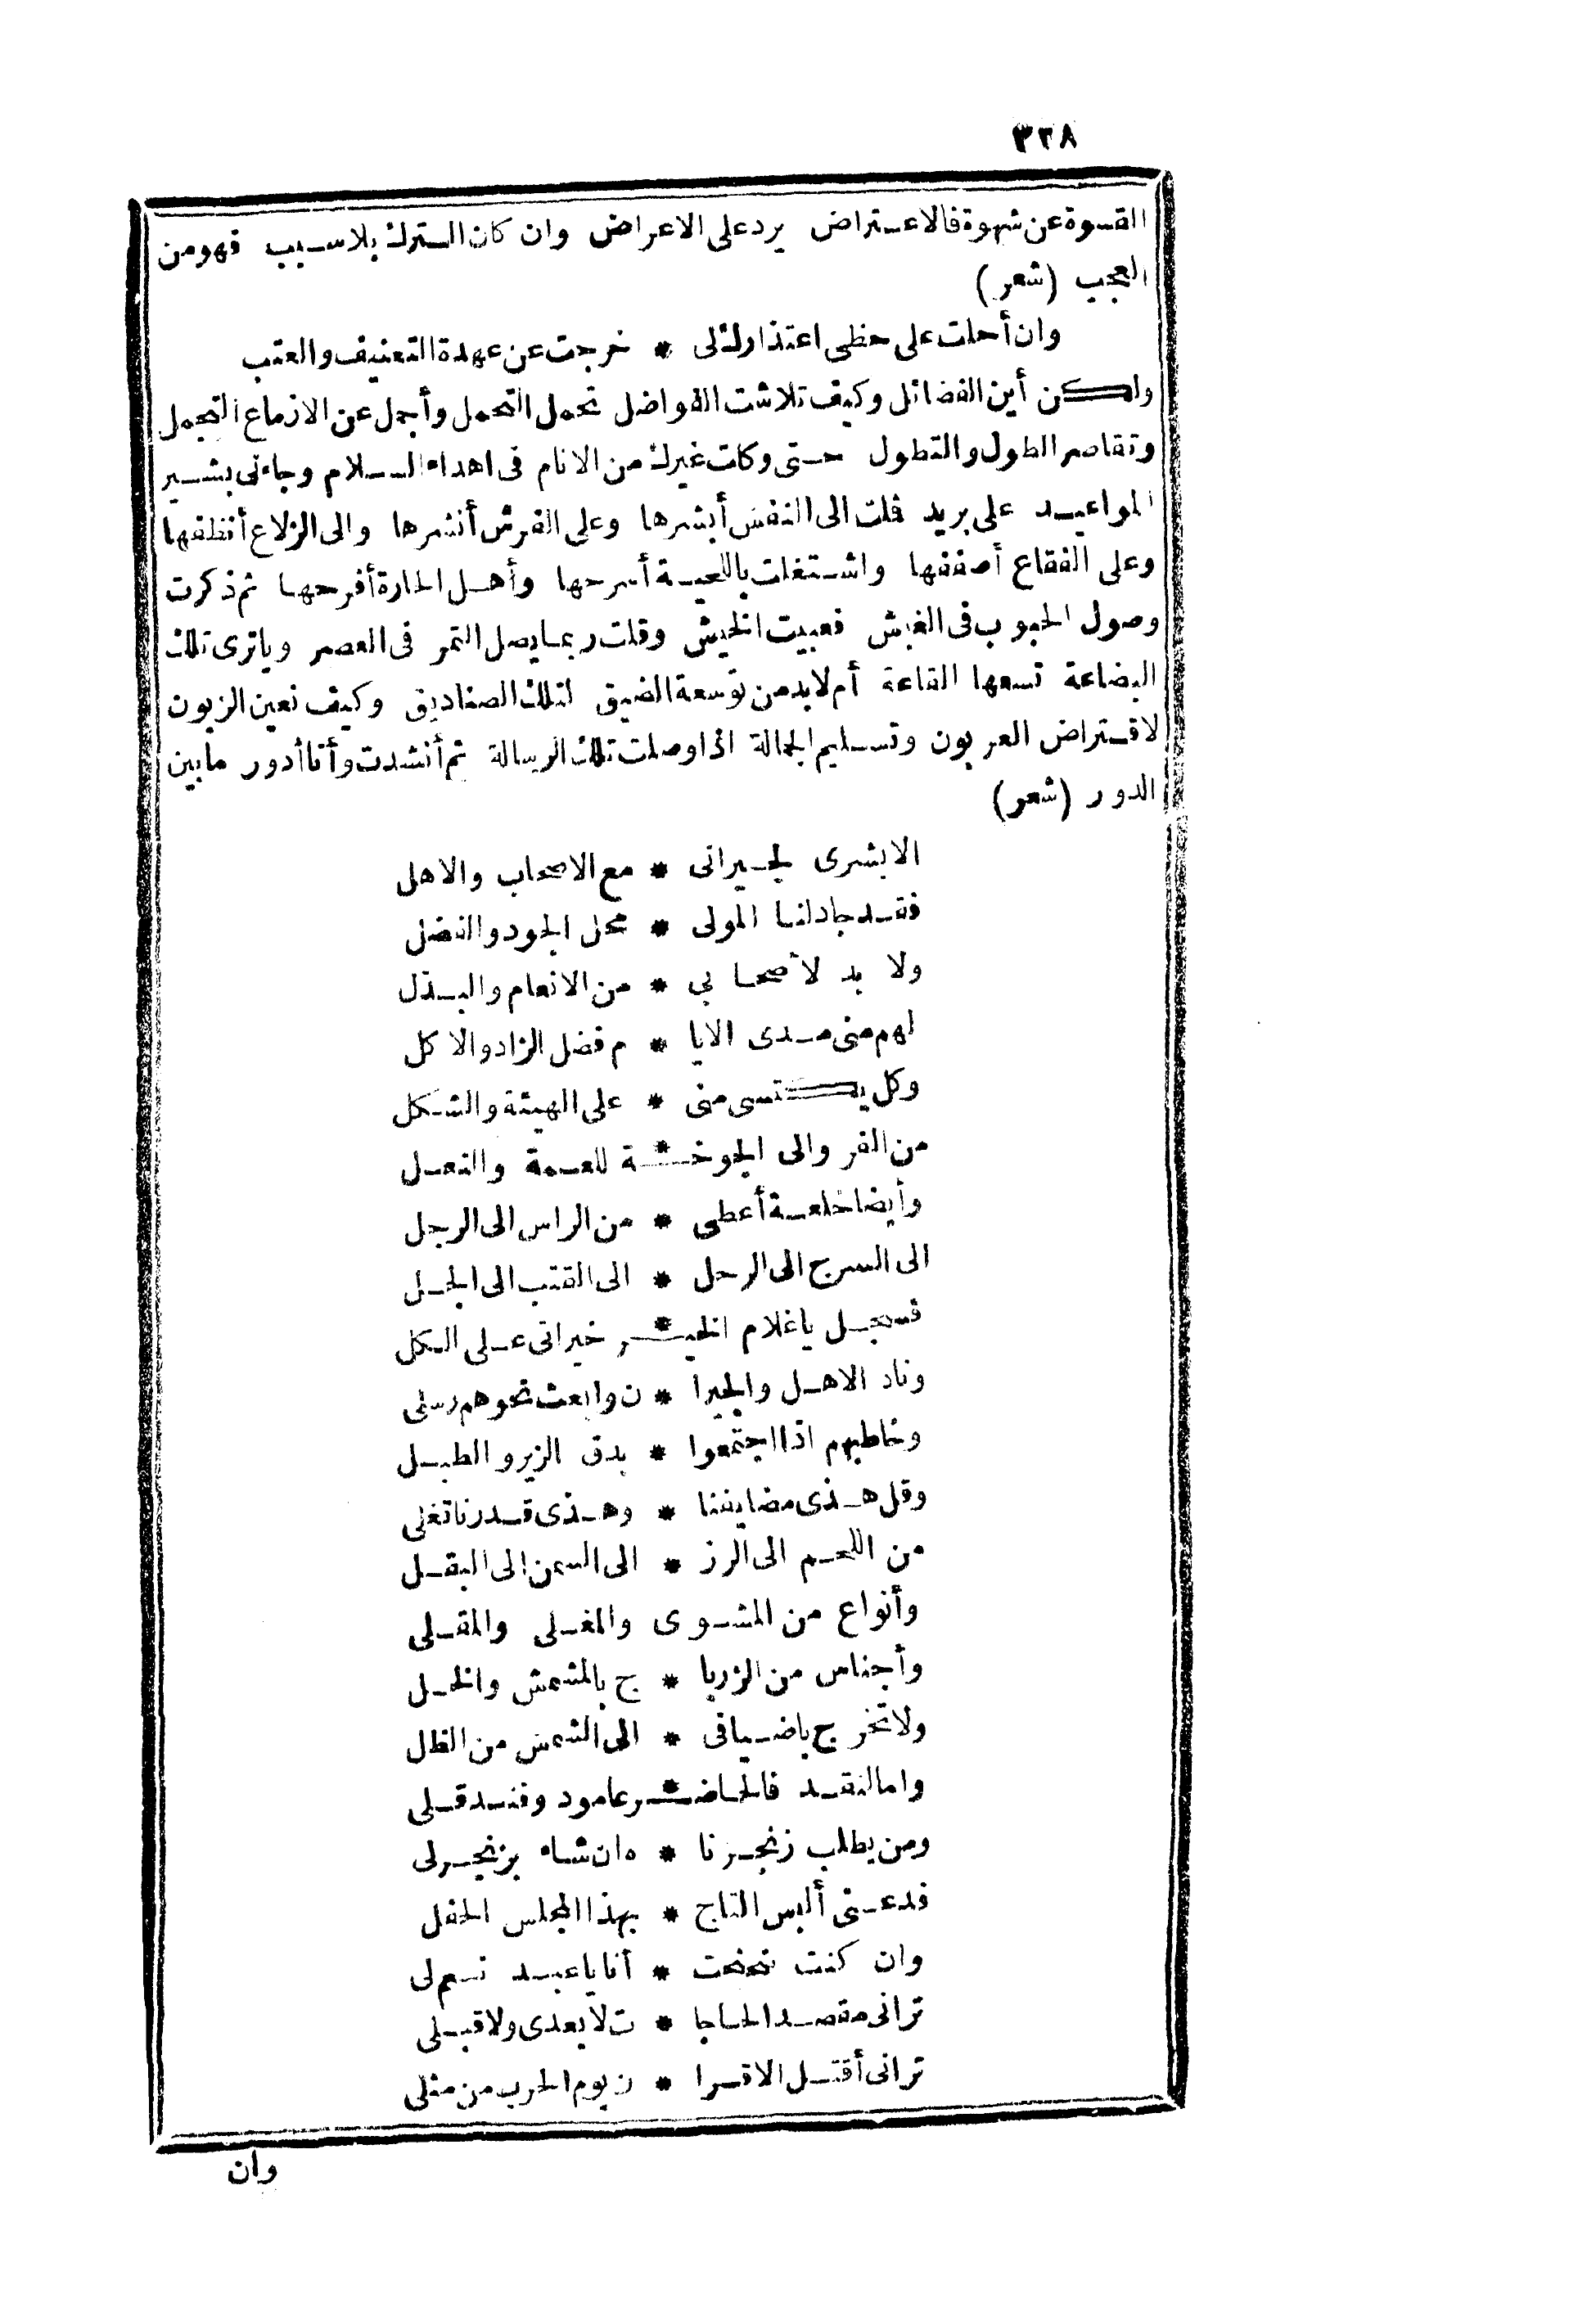 ٣٢٨
القسوة عن شهوة فالاعتراض يرد على الاعراض وان كان الترك بلا سبب فهو من
العجب (شعر)
وان أحلت على حظى اعتذارك لى * خرجت عن عهدة التعنيف والعتب
ولكن أين الفضائل وكيف تلاشت الفواضل تحمل التحمل وأجمل عن الازماع التجمل
وتقاصر الطول والتطول حتى وكات غيرك من الانام فى اهداء السلام وجاءنى بشير
المواعيد على بريد فلت الى النفس أبشرها وعلى الفرش أنشرها والى الزلاع أنظفها
وعلى الفقاع أصففها واشتغلت باللعبة أسرحها وأهل الحارة أفرحها ثم ذكرت
وصول الحبوب فى الغبش فعبيت الخيش وقلت ربما يصل التمر فى العصر ويا ترى تلك
البضاعة تسعها القاعة أم لابد من توسعة الضيق لتلك الصناديق وكيف نعين الزبون
لاقتراض العربون وتسليم الجمالة اذا وصلت تلك الرسالة ثم أنشدت وأنا أدور ما بين
الدور (شعر)
الا بشرى لجيرانى * مع الاصحاب والاهل
فقد جاد لنا المولى * محل الجود والفضل
ولا بد لاصحابى * من الانعام والبذل
لهم منى مدى الايا * م فضل الزاد والاكل
وكل يكتسى منى * على الهيئة والشكل
من الفر والى الجوخة * للعمة والنعل
وأيضا خلعة أعطى * من الراس الى الرجل
الى السرج الى الرحل * الى القتب الى الجل
فسجل يا غلام الخير * خيرانى على الكل
وناد الاهل والجيرا * ن وابعث نحوهم رسلى
وخاطبهم اذا اجتمعوا * بدق الزير والطبل
وقل هذى مضايفنا * وهذى قدرنا تغلى
من اللحم الى الرز * الى السمن الى البقل
وأنواع من المشوى والمغلى والمقلى
وأجناس من الزربا * ج بالمشمش والخل
ولا تخرج باضيافى * الى الشمس من الظل
واما النقد فالحاضر * عامود وفندقلى
ومن يطلب زنجرنا * ه ان شاء بزنجرلى
فدعنى ألبس التاج * بهذا المجلس الحفل
وان كنت تنحنحت * أنا يا عبد نسم لى
ترانى مقصد الحاجا * ت لا بعدى ولا قبلى
ترانى أقتل الاقرا * ن يوم الحرب من مثلى
وان